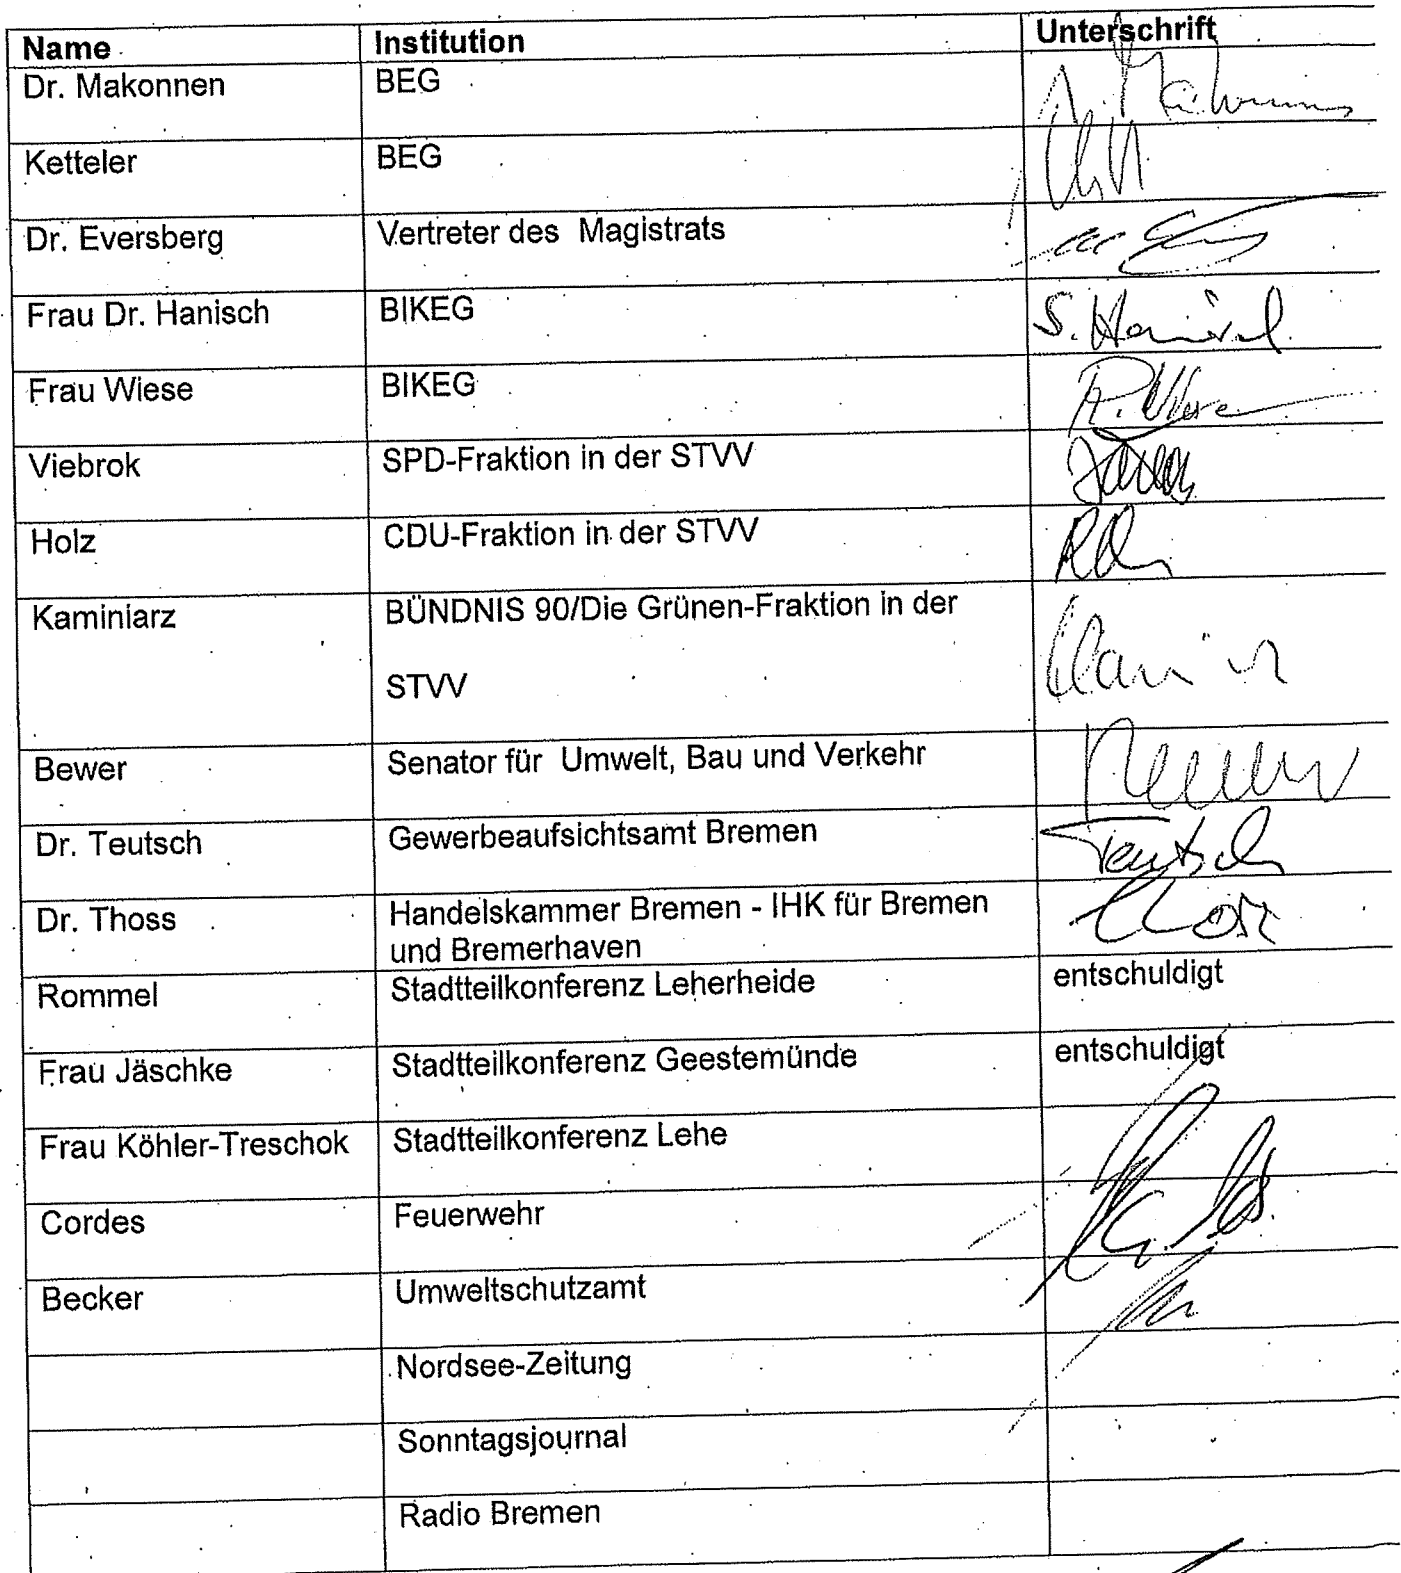 Name Institution Unterschrift
Dr. Makonnen BEG
Ketteler BEG
Dr. Eversberg Vertreter des Magistrats
Frau Dr. Hanisch BIKEG S. Hanisch
Frau Wiese BIKEG R. Wiese
Viebrok SPD-Fraktion in der STVV
Holz CDU-Fraktion in der STVV
Kaminiarz BÜNDNIS 90/Die Grünen-Fraktion in der
STVV
Bewer Senator für Umwelt, Bau und Verkehr
Dr. Teutsch Gewerbeaufsichtsamt Bremen Teutsch
Dr. Thoss Handelskammer Bremen - IHK für Bremen
und Bremerhaven
Rommel Stadtteilkonferenz Leherheide entschuldigt
Frau Jäschke Stadtteilkonferenz Geestemünde entschuldigt
Frau Köhler-Treschok Stadtteilkonferenz Lehe
Cordes Feuerwehr
Becker Umweltschutzamt
Nordsee-Zeitung
Sonntagsjournal
Radio Bremen